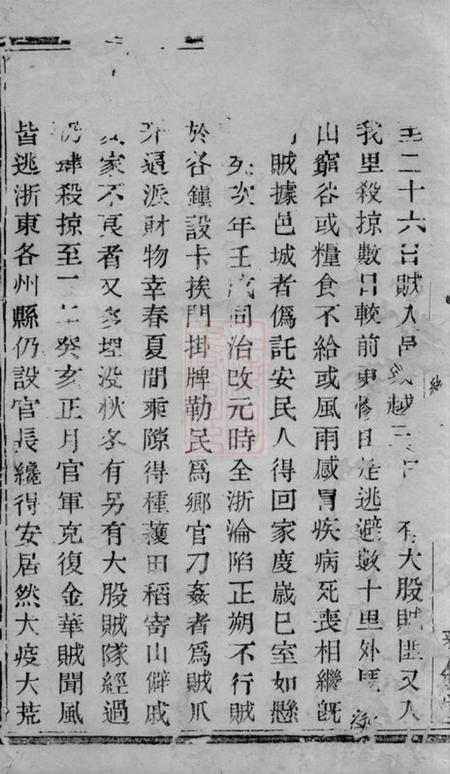 二十六日賊入邑城越三日 有大股賊匪又入
我里殺掠數日較前更慘由是逃避數十里外
山窮谷或糧食不給或風雨感冒疾病死喪相繼旣
賊據邑城者僞託安民人得回家度歲已室如懸
次年壬戌同治改元時全浙淪陷正朔不行賊
於各鎮設卡挨門掛牌勒民爲鄉官刀姦者爲賊爪
牙逼派財物幸春夏間乘隙得種穫田稻寄山僻戚
家不食者又多埋没秋冬有另有大股賊隊經過
仍肆殺掠至 癸亥正月官軍克復金華賊聞風
皆逃浙東各州縣仍設官長纔得安居然大疫大荒